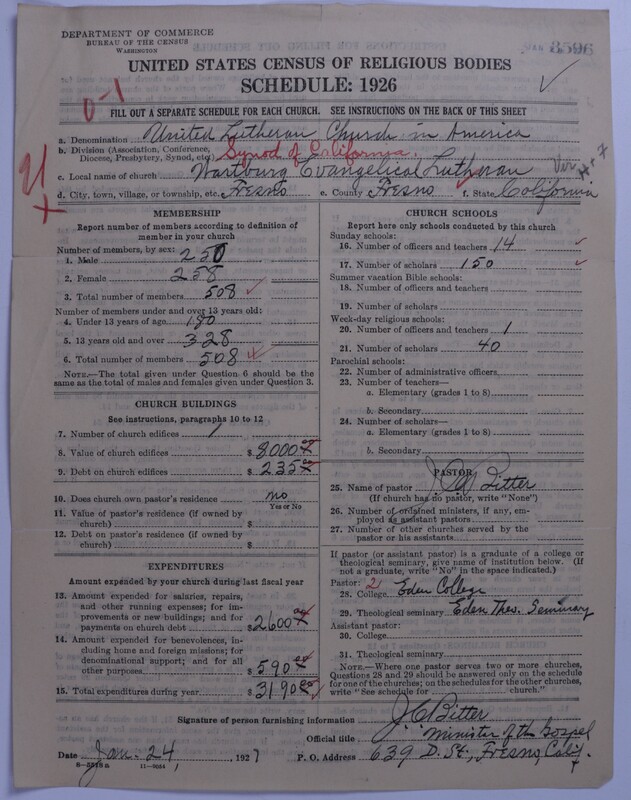 DEPARTMENT OF COMMERCE
BUREAU OF THE CENSUS
WASHINGTON
8596
UNITED STATES CENSUS OF RELIGIOUS BODIES
SCHEDULE: 1926
0-1
FILL OUT A SEPARATE SCHEDULE FOR EACH CHURCH. SEE INSTRUCTIONS ON THE BACK OF THIS SHEET
a. Denomination United Lutheran Church in America
b. Division (Association, Conference, Diocese, Presbytery, Synod, etc.) Synod of California.
c. Local name of church Wartburg Evangelical Lutheran
d. City, town, village, or township, etc. Fresno e. County Fresno f. State California
MEMBERSHIP
Report number of members according to definition of
member in your church
Number of members, by sex:
1. Male 250
2. Female 258
3. Total number of members 508
Number of members under and over 13 years old:
4. Under 13 years of age 180
5. 13 years old and over 328
6. Total number of members 508
NOTE.—The total given under Question 6 should be
same as the total of males and females given under Question 3.
CHURCH BUILDINGS
See instructions, paragraphs 10 to 12
7. Number of church edifices 1
8. Value of church edifices $ 8000.00
9. Debt on church edifices $ 235.00
10. Does church own pastor's residence no
Yes or No
11. Value of pastor's residence (if owned by
church) $
12. Debt on pastor's residence (if owned by
church) $
EXPENDITURES
Amount expended by your church during last fiscal year
13. Amount expended for salaries, repairs,
and other running expense; for im-
provements or new buildings; and for
payments on church debt $ 2600.00
14. Amount expended for benevolences, in-
cluding home and foreign missions; for
denominational support; and for all
other purposes $ 590.00
15. Total expenditures during year $ 3190.00
CHURCH SCHOOLS
Report here only schools conducted by this church
Sunday schools:
16. Number of officers and teachers 14
17. Number of scholars 150
Summer vacation Bible schools:
18. Number of officers and teachers
19. Number of scholars
Week-day religious schools:
20. Number of officers and teachers 1
21. Number of scholars 40
Parochial schools:
22. Number of administrative officers
23. Number of teachers—
a. Elementary (grades 1 to 8)
b. Secondary
24. Number of scholars—
a. Elementary (grades 1 to 8)
b. Secondary
PASTOR
25. Name of pastor J. C. Bitter
(If church has no pastor, write "None")
26. Number of ordained ministers, if any, em-
ployed as assistant pastors
27. Number of other churches served by the
pastor or his assistants
If pastor (or assistant pastor) is a graduate of a college or
theological seminary, give name of institution below. (If
not a graduate, write "No" in the space indicated.)
Pastor: 2
28. College Eden College
29. Theological seminary Eden Theo. Seminary
Assistant pastor:
30. College
31. Theological seminary
NOTE.—Where one pastor serves two or more churches,
Questions 28 and 29 should be answered only on the schedule
for one of the churches; on the schedules for the other churches,
write "See schedule for church."
Signature of person furnishing information J. C. Bitter
Official title Minister of the Gospel
Date Jan. 24, 1927 P. O. Address 639 D. St., Fresno, Calif.
8-5518a 11-9084